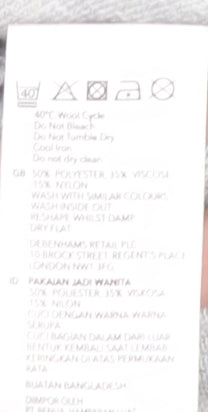 40
40°C Wool Cycle
Do Not Bleach
Do Not Tumble Dry
Cool Iron
Do not dry clean
GB 50% POLYESTER, 35% VISCOSE
15% NYLON
WASH WITH SIMILAR COLOURS
WASH INSIDE OUT
RESHAPE WHILST DAMP
DRY FLAT
DEBENHAMS RETAIL PLC
10 BROCK STREET REGENT'S PLACE
LONDON NW1 3FG
ID PAKAIAN JADI WANITA
50% POLIESTER, 35% VISKOSA
15% NILON
CUCI DENGAN WARNA WARNA
SERUPA
CUCI BAGIAN DALAM DARI LUAR
BENTUK KEMBALI SAAT LEMBAB
KERINGKAN DI ATAS PERMUKAAN
RATA
BUATAN BANGLADESH
DIIMPOR OLEH
PT